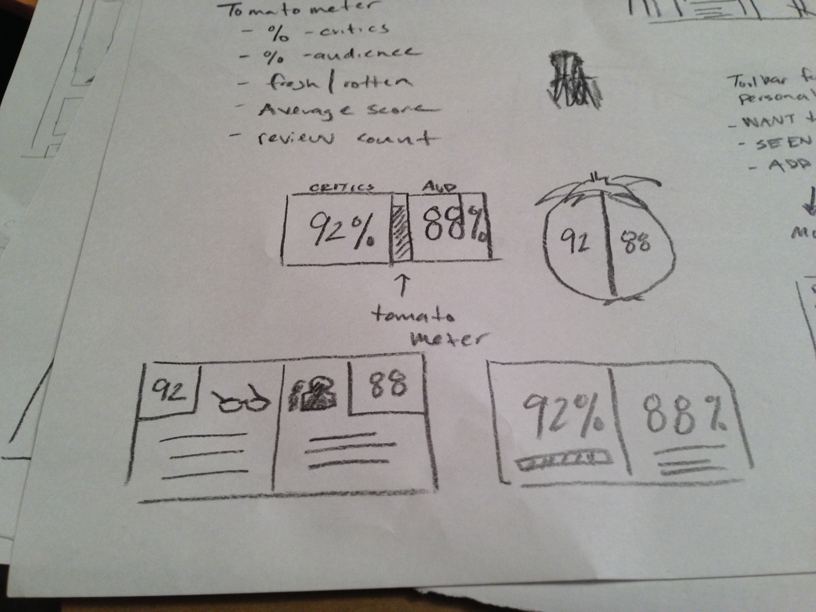 Tomatometer
- % - critics
- % - audience
- fresh / rotten
- Average score
- review count
Toolbar
- WANT
- SEEN
- ADD
CRITICS AUD
92% 88%
92 88
tomato
meter
92 88
92% 88%